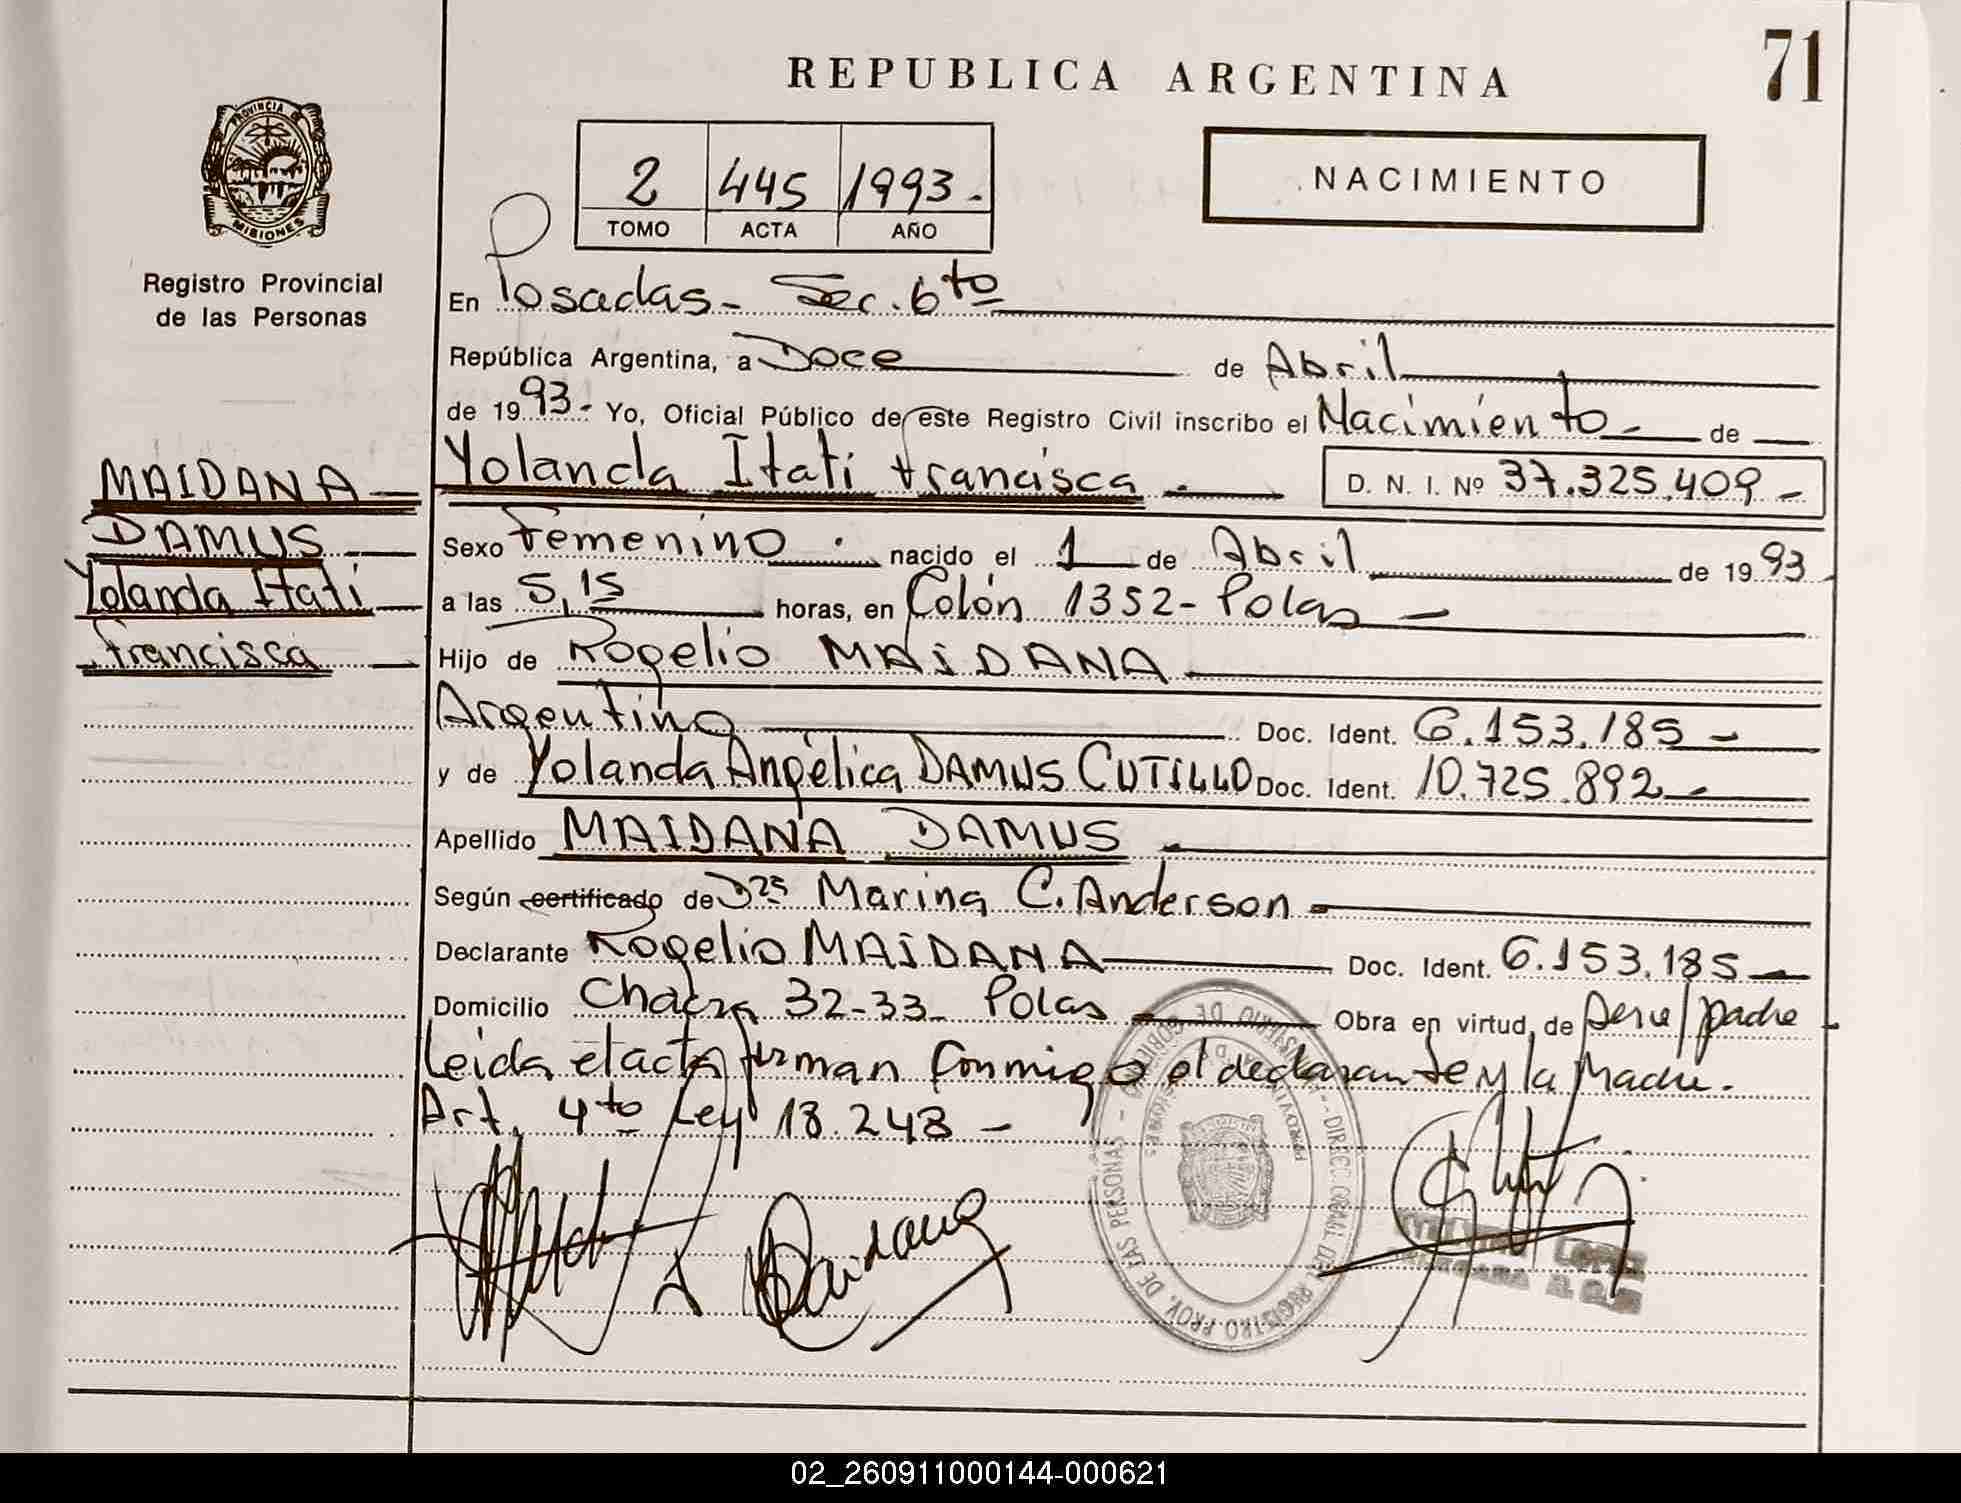 71
REPUBLICA ARGENTINA
PROVINCIA DE
MISIONES
2 445 1993.-
TOMO ACTA AÑO
NACIMIENTO
Registro Provincial
de las Personas
En Posadas- Sec. 6to
República Argentina, a Doce de Abril
de 1993.- Yo, Oficial Público de este Registro Civil inscribo el Nacimiento- de
MAIDANA
DAMUS
Yolanda Itatí
Francisca
Yolanda Itatí Francisca.- D. N. I. Nº 37.325.409-
Sexo Femenino. nacido el 1 de Abril de 1993
a las 5,15 horas, en Colón 1352- Pdas-
Hijo de Rogelio MAIDANA
Argentino Doc. Ident. 6.153.185-
y de Yolanda Angélica DAMUS CUTILLO Doc. Ident. 10.725.892-
Apellido MAIDANA DAMUS
Según certificado de Dra Marina C. Anderson-
Declarante Rogelio MAIDANA Doc. Ident. 6.153.185-
Domicilio Chacra 32-33- Pdas Obra en virtud de /padre
Leida el acta firman conmigo el declarante y la Madre.
Art. 4to Ley 18.248-
MINISTERIO DE GOBIERNO - DIREC. GRAL. DEL REGISTRO PROV. DE LAS PERSONAS
PROVINCIA DE MISIONES
LOPEZ
02_260911000144-000621